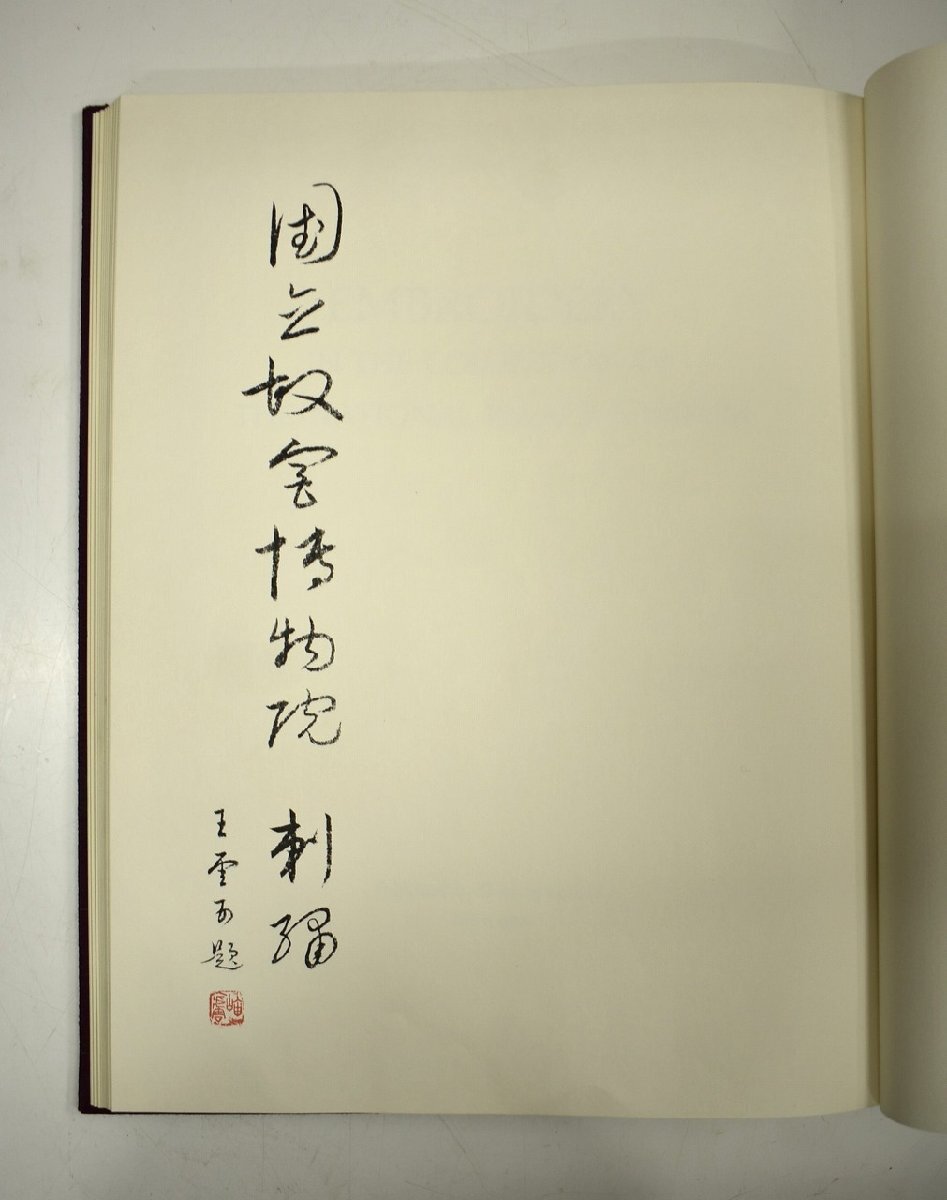 國立故宮博物院 刺繡
王雲五題